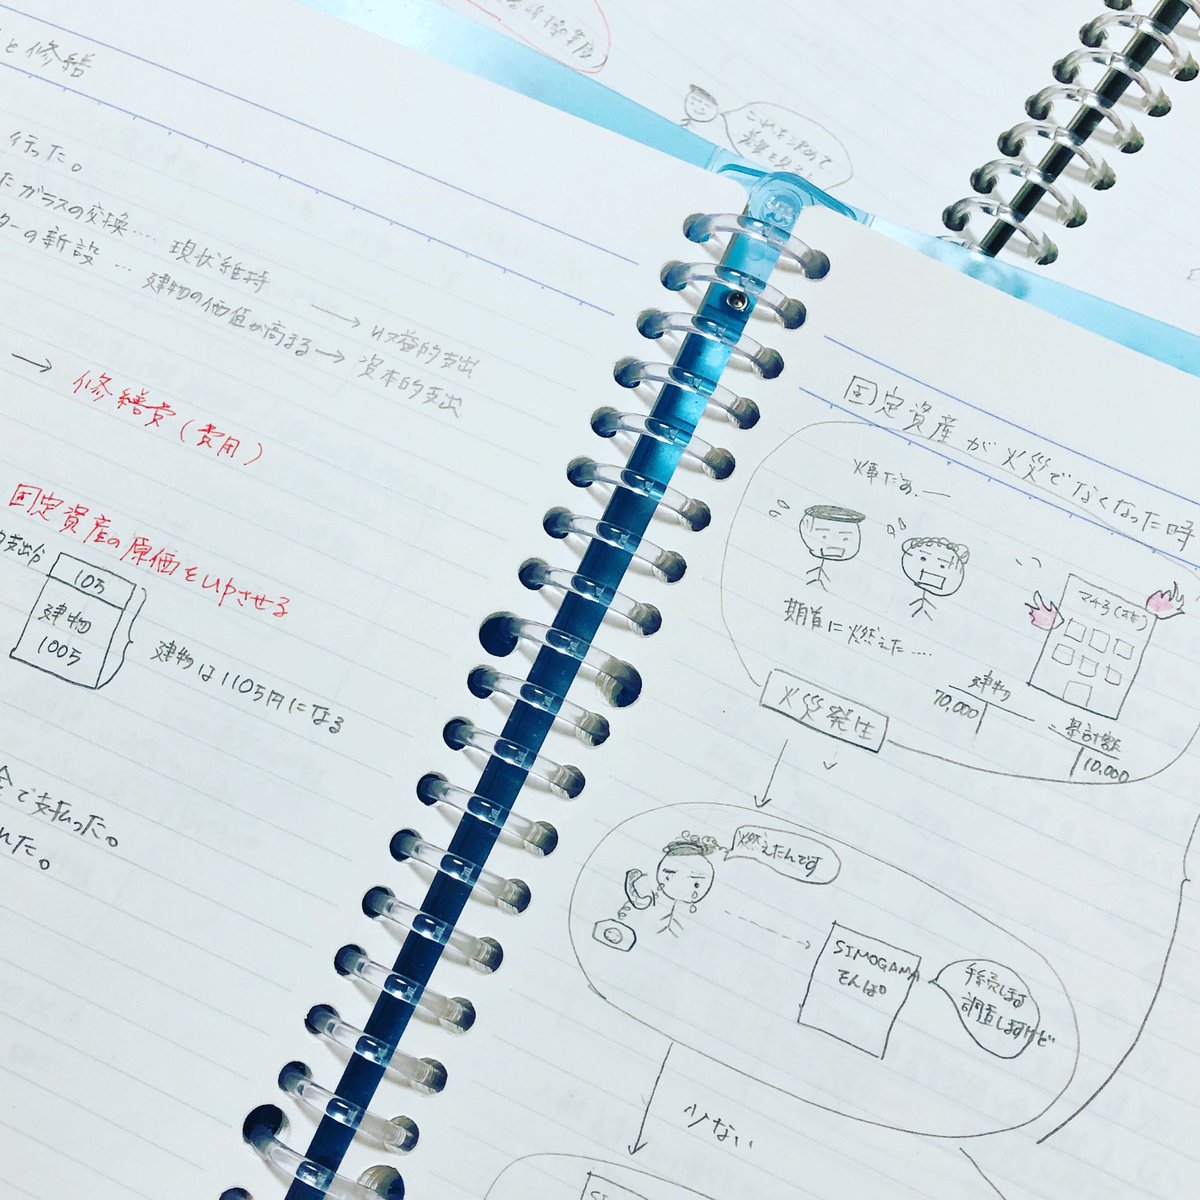 と修繕
行った。
たガラスの交換…. 現状維持 → 収益的支出
ターの新設 … 建物の価値が高まる → 資本的支出
→ 修繕費(費用)
固定資産の原価をupさせる
的支出分
105
建物
1005
建物は1105円になる
金で支払った。
れた。
これを決めて
固定資産が火災でなくなった時
火事だあ、ー
期首に燃えた….
マチろ(株)
建物
70,000
累計額
10,000
火災発生
燃えたんです
SIMOGAMA
そんぽ。
手続します
調査しますけど
少ない